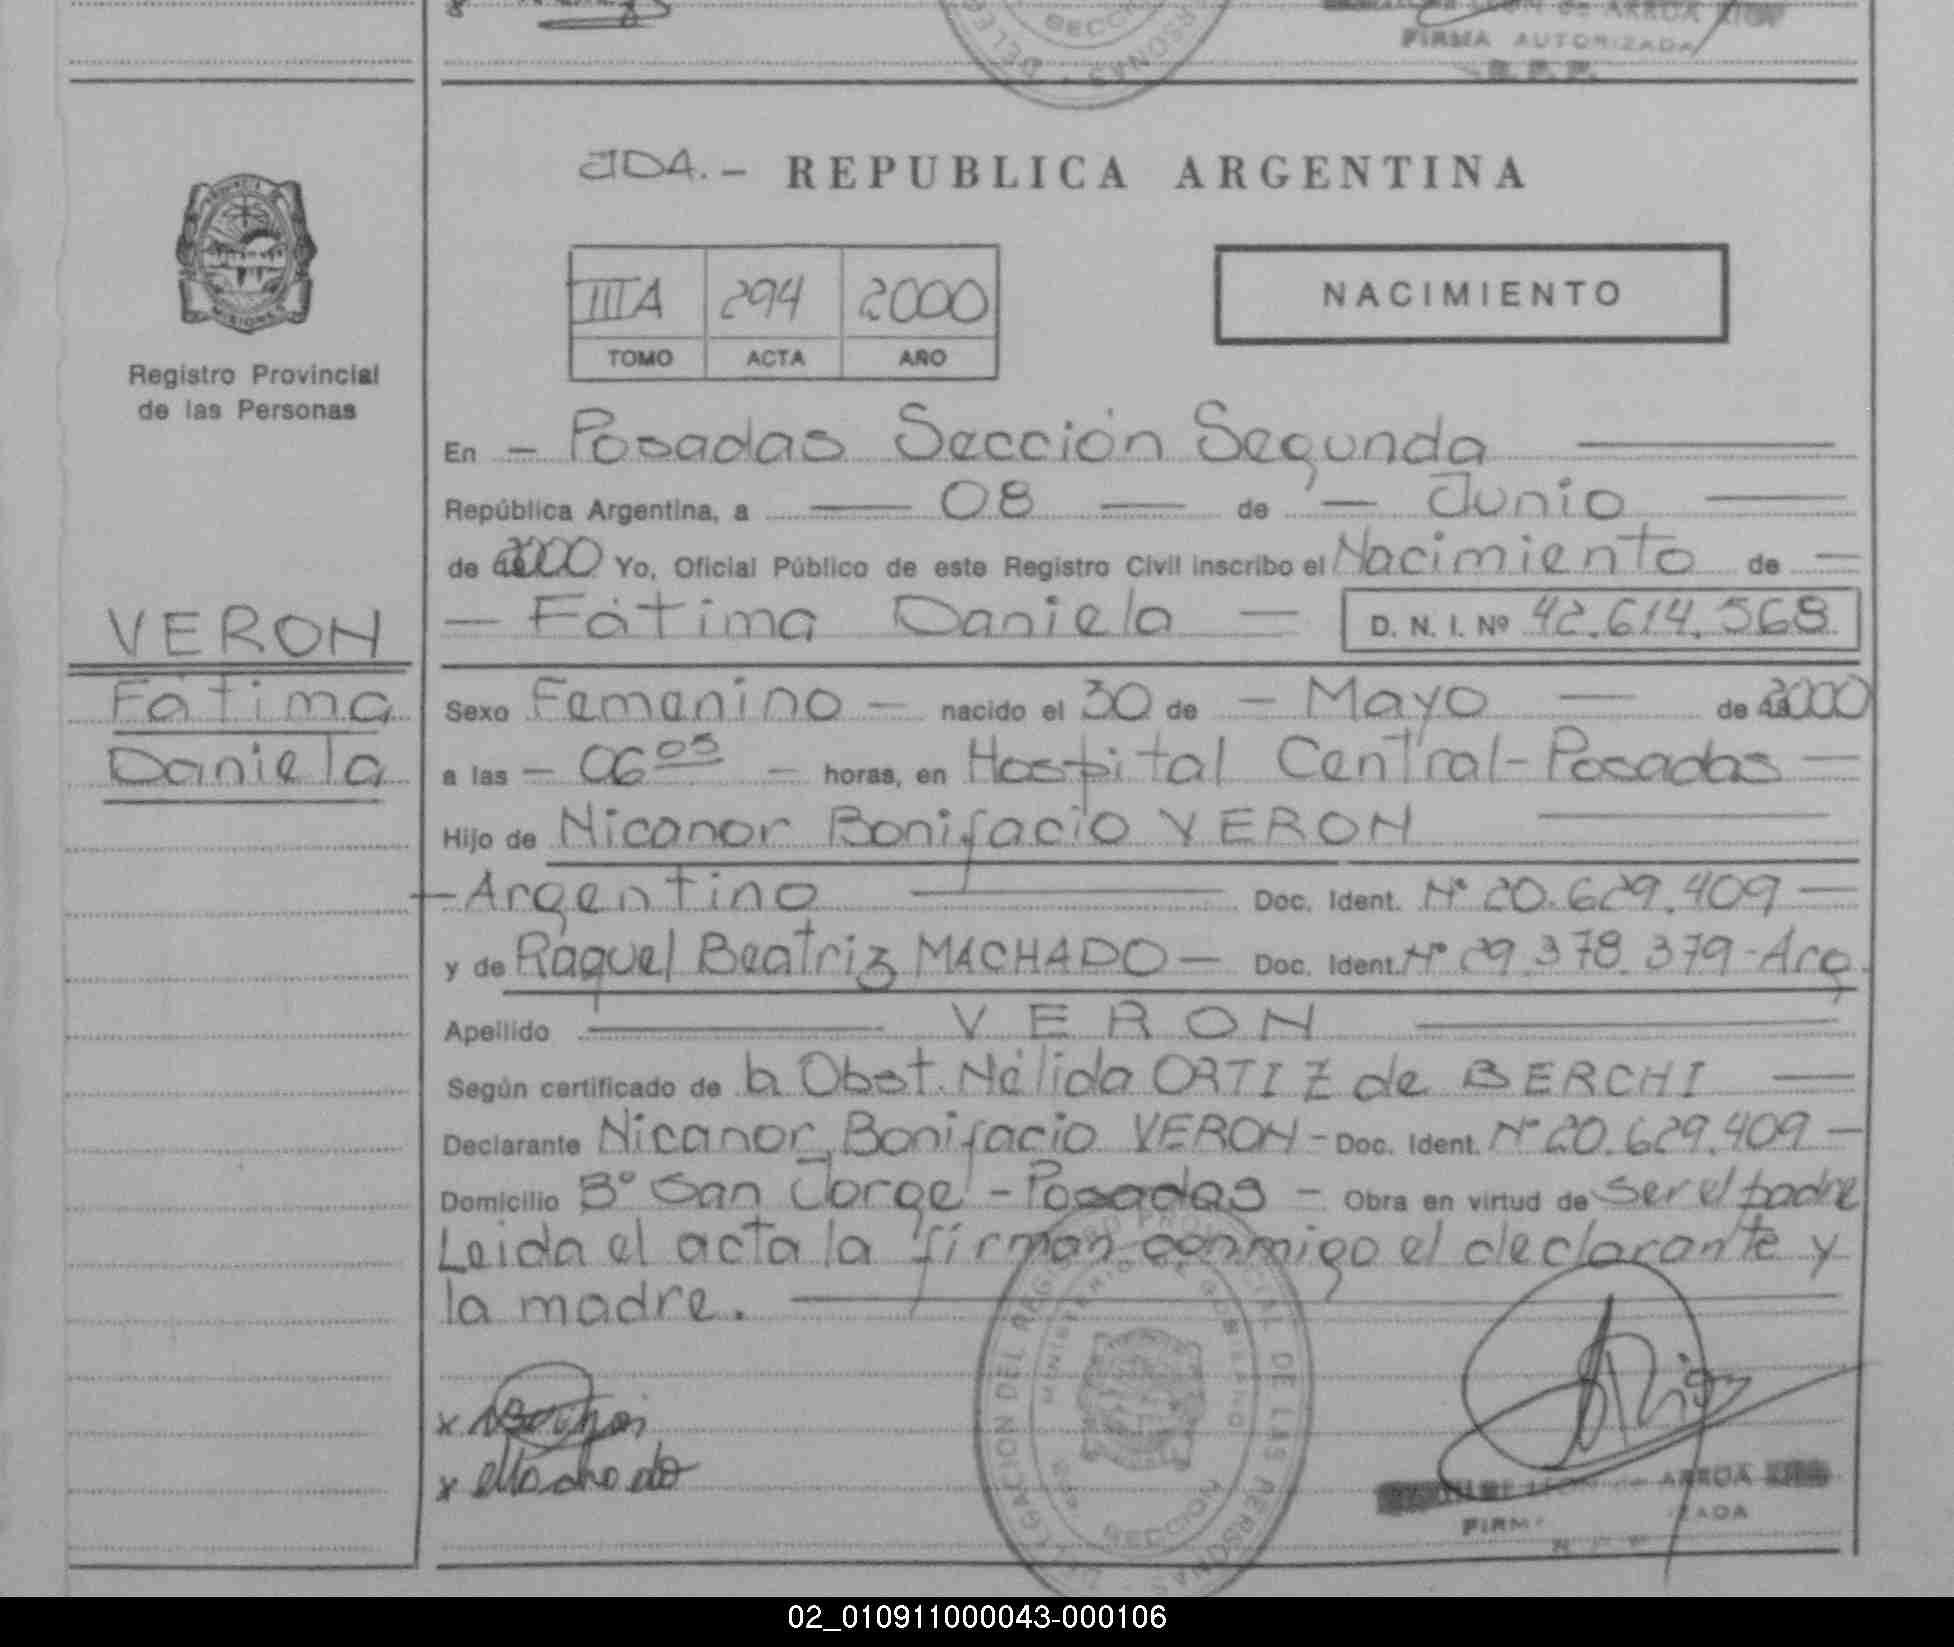 FIRMA AUTORIZADA
JDA. - REPUBLICA ARGENTINA
IIIA 294 2000
TOMO ACTA AÑO
NACIMIENTO
MISIONES
Registro Provincial
de las Personas
En - Posadas Sección Segunda
República Argentina, a 08 de - Junio
de 2000 Yo, Oficial Público de este Registro Civil inscribo el Nacimiento de -
- Fátima Daniela - D. N. I. Nº 42.614.568
VERON
Fátima
Daniela
Sexo Femenino - nacido el 30 de - Mayo - de 2000
a las - 06 05 - horas, en Hospital Central - Posadas -
Hijo de Nicanor Bonifacio VERON
- Argentino Doc. Ident. Nº 20.629.409 -
y de Raquel Beatriz MACHADO - Doc. Ident. Nº 29.378.379 - Arg.
Apellido VERON
Según certificado de la Obst. Nélida ORTIZ de BERCHI -
Declarante Nicanor Bonifacio VERON - Doc. Ident. Nº 20.629.409 -
Domicilio Bº San Jorge - Posadas - Obra en virtud de ser el padre
Leida el acta la firman conmigo el declarante y
la madre.
DELEGACION DEL REGISTRO PROVINCIAL DE LAS PERSONAS
MINISTERIO DE GOBIERNO
SECCION
x
x Machado
de ARROA
02_010911000043-000106